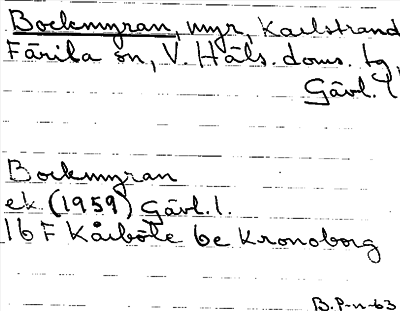 Bockmyran, myr, Karlstrand
Färila sn, V. Häls. doms. tg,
Gävl. l
Bockmyran
ek (1959) Gävl. l.
16 F Kårböle 6e Kronoborg
B.P-n-63